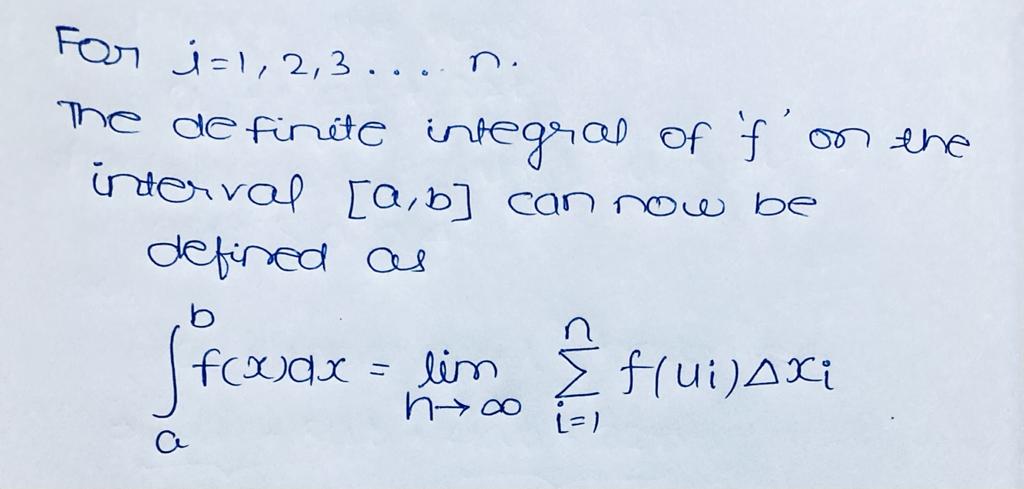 For i=1, 2, 3 .... n.
The definite integral of 'f' on the
interval [a,b] can now be
defined as
∫_a^b f(x)dx = lim_{n→∞} ∑_{i=1}^n f(ui)Δxi